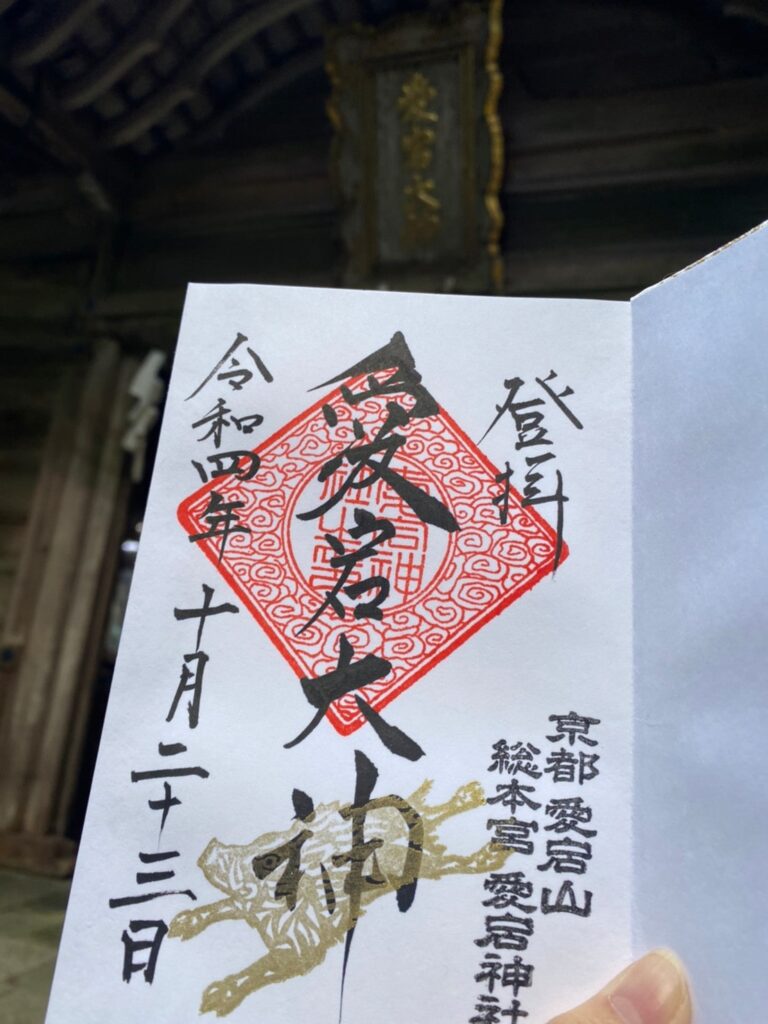 登拝
京都 愛宕山
総本宮 愛宕神社
愛宕大神
令和四年 十月二十三日